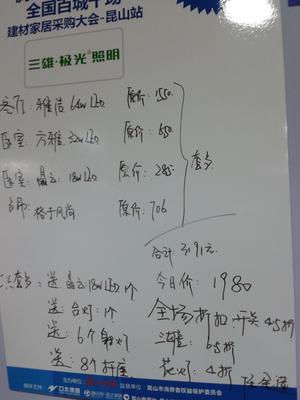 全国百城千场
建材家居采购大会-昆山站
三雄·极光®照明
客厅: 雅洁 64w LED 原价: 1550
卧室: 方雅 32w LED 原价: 650
卧室: 晶云 18w LED 原价: 285
格子风尚 原价: 706
套餐
合计: 3191元
套餐: 送 晶云 18w LED 1个
今日价: 1980
送 台灯: 1个
全场折扣: 开关 4.5折
送: 6个射灯
6.5折
送: 8个插座
花灯: 4折
主办单位:
昆山市消费者权益保护委员会